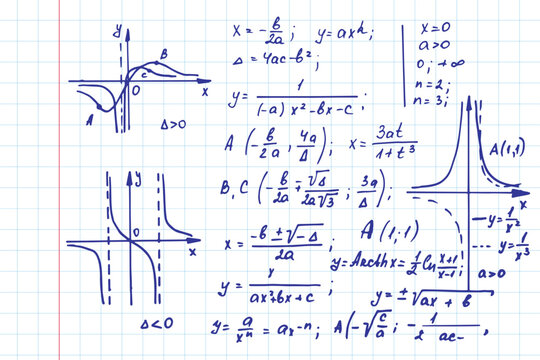 y
B
c
O
x
A
Δ>0
y
O
x
Δ<0
x = -b/2a ; y = ax^h;
Δ = 4ac-b²;
y = 1/((-a) x²-bx-c);
A (-b/2a, 4a/Δ); x = 3at/(1+t³)
B, C (-b/2a ∓ √Δ/(2a√3); 3a/Δ);
x = (-b ± √-Δ)/2a ; A (1;1)
y = Arcth x = 1/2 ln (x+1)/(x-1);
y = x/(ax²+bx+c) ; y = ±√ax + b
y = a/xⁿ = ax-n; A(-√c/a; - 1/2 ac-,
x=0
a>0
0; +∞
n=2;
n=3;
A(1,1)
x
y=1/x²
y=1/x³
a>0